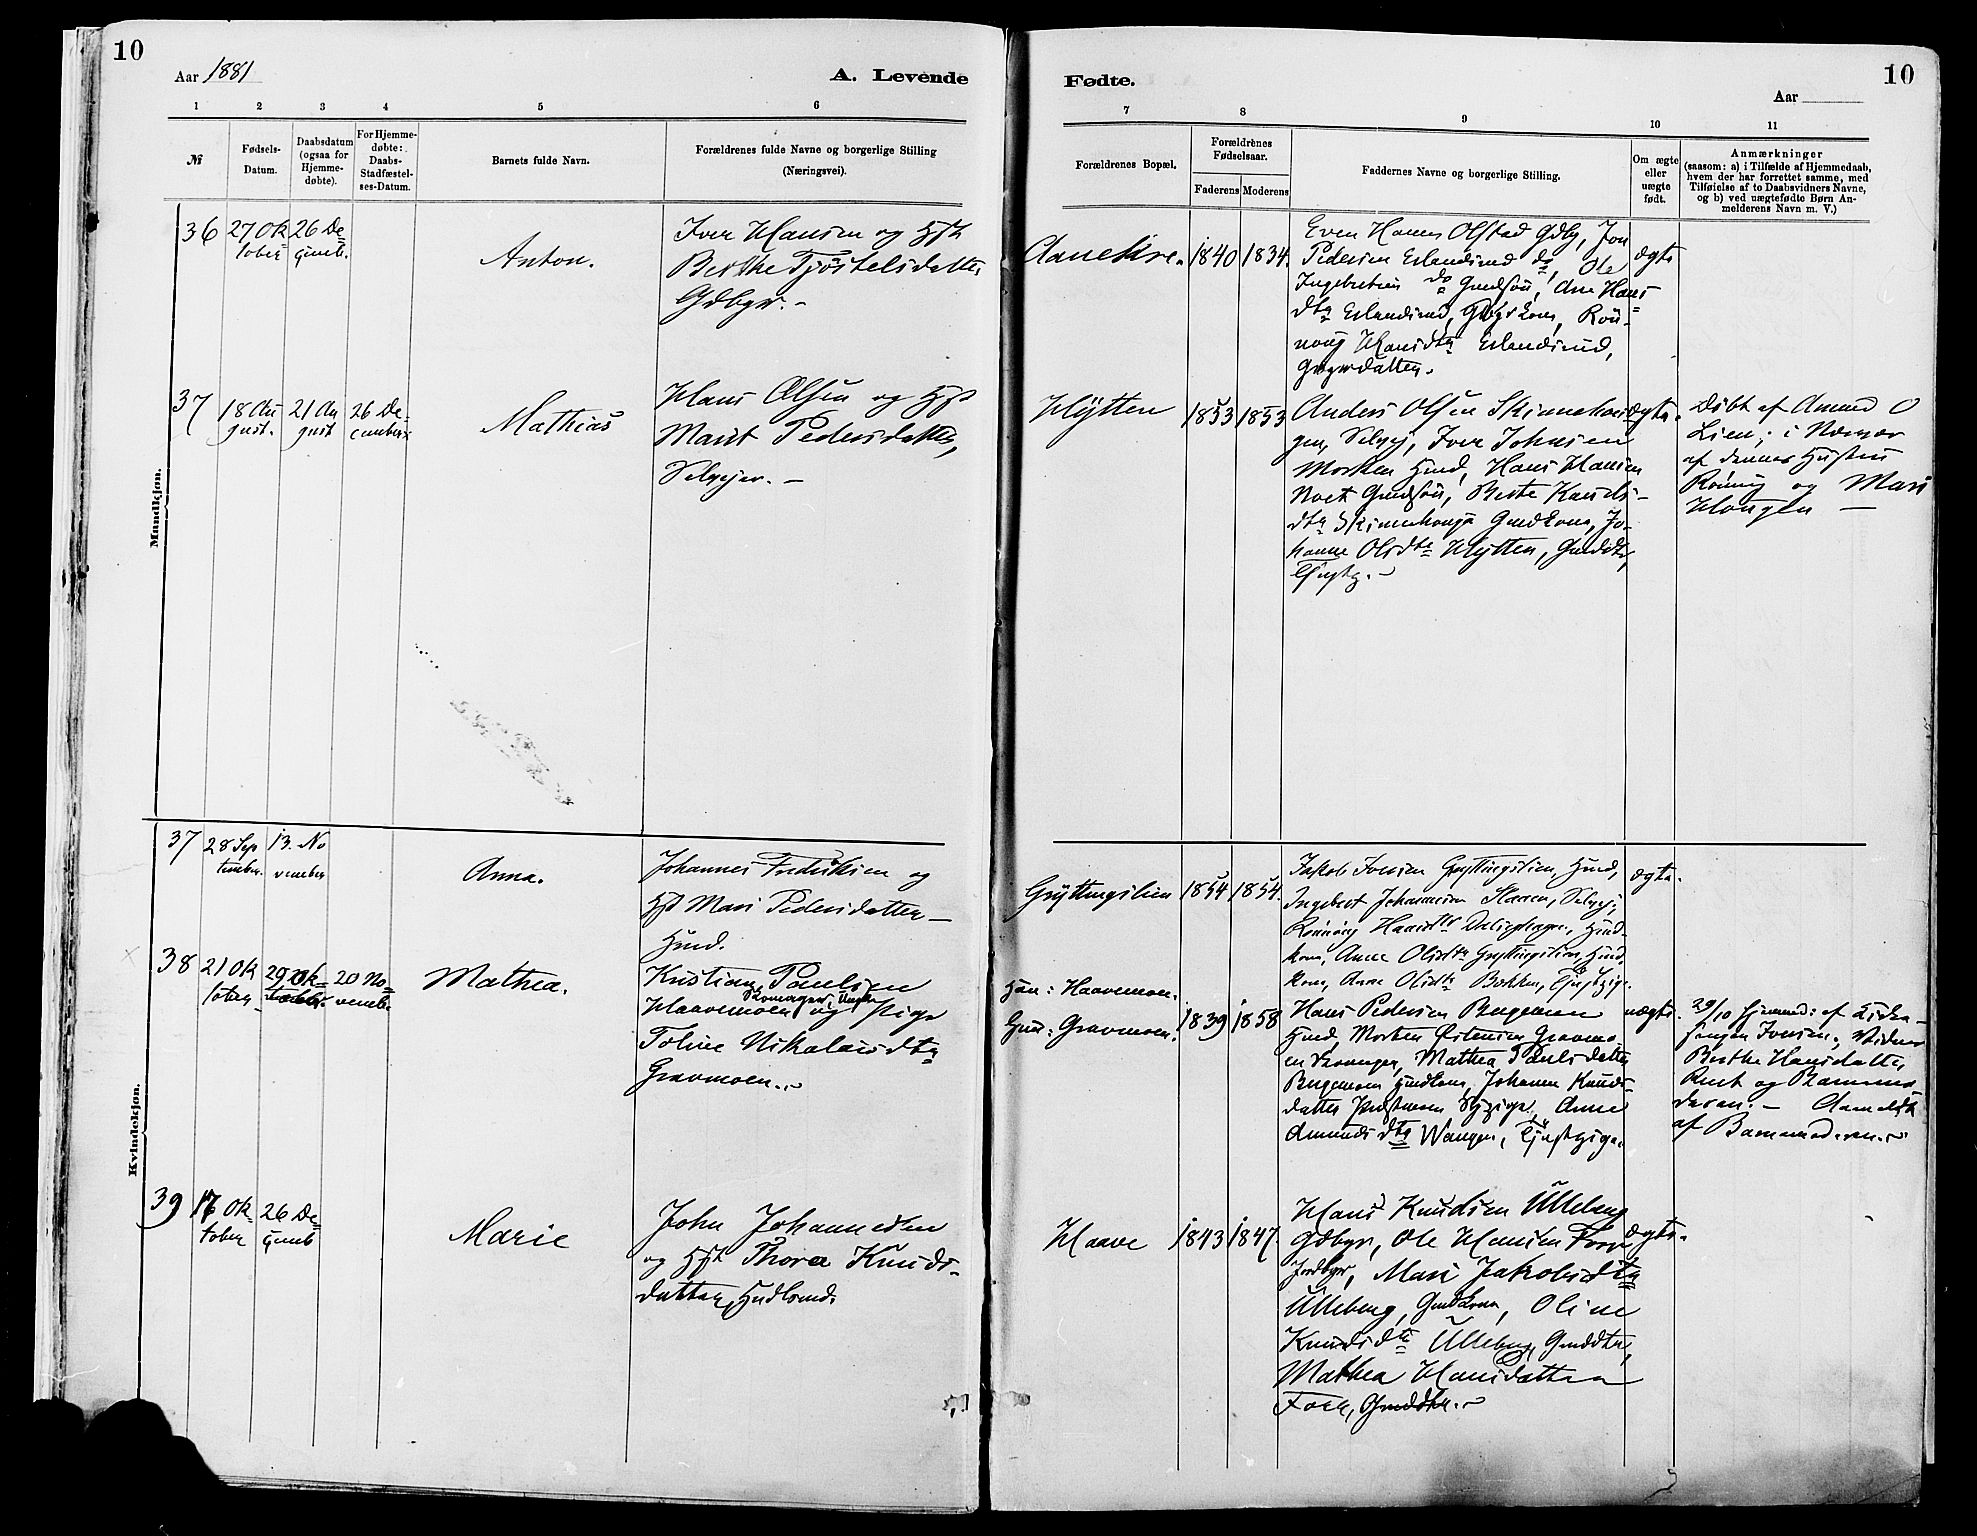 10
Aar 1881
A. Levende
1 2 3 4 5 6
№
Fødsels-
Datum.
Daabsdatum
(ogsaa for
Hjemme-
døbte).
For Hjemme-
døbte:
Daabs-
Stadfæstel-
ses-Datum.
Barnets fulde Navn.
Forældrenes fulde Navne og borgerlige Stilling
(Næringsvei).
Mandkjøn.
36
27 Ok
tober
26 De
cemb.
Anton.
Iver Hansen og Hst
Berthe Tjøstelsdatter
Gdbgr. -
37
18 Au
gust.
21 Au
gust
26 De-
cember
Mathias
Hans Olsen og Hst
Marit Pedersdatter,
Selvejer. -
Kvindekjøn.
37
28 Sep
tember.
13. No
vember
Anna.
Johannes Fredriksen og
Hst Mari Pedersdatter -
Hmd.
38
21 Ok
tober
29 Ok-
20 No-
vemb.
Mathea.
Kristian Paulsen
Haavemoen og Pige
Toline Nikolaisdtr
Gravmoen.
39
17 Ok-
tober
26 De-
cemb
Marie
John Johannesen
og Hst Thora Knuds-
datter,
Fødte.
10
Aar
7 8 9 10 11
Forældrenes Bopæl.
Forældrenes
Fødselsaar.
Faderens Moderens
Faddernes Navne og borgerlige Stilling.
Om ægte
eller
uægte
født.
Anmærkninger
(saasom: a) i Tilfælde af Hjemmedaab,
hvem der har forrettet samme, med
Tilføielse af to Daabsvidners Navne,
og b) ved uægtefødte Børn An-
melderens Navn m. V.)
1840 1834.
Even Hansen Olstad Gdbr, Jon
Pedersen Erlandsrud do, Ole
Ingebretsen do Gmdsøn, Ane Hans
dtr Erlandsrud, Gdbgrkone, Rön-
noug Hansdtr Erlandsrud,
ægte
Hÿtten
1853 1853
Anders Olsen Skinnehau
gen, Selvej, Iver Johnsen
Morken Hmd, Hans Hansen
Gmdsön, Berte Knuds-
dtr Skinnehaugen Gmdkone, Jo-
hanne Olsdtr Hÿtten, Gmddtr,
Tjnstg. -
ægte.
Döbt af Amund O
Lien; i Nærvær
af dennes Hustru
Rönnug og Mari
Haugen -
Grÿttingslien
1854 1854.
Jakob Iversen Grÿttingslien, Hmd,
Ingebret Johannesen
kone, Anne Olsdtr Grÿttingslien, Hmd
kone, Anne Olsdtr Bakken, Tjnstpig.
ægte.
Han: Haavemoen.
Hun: Gravmoen.
1839 1858
Hans Pedersen
Hmd, Morten Östensen Gravmo-
en Mathea Paulsdatter
Gmdkone, Johanne Knuds-
datter Anne
Amundsdtr Wangen, Tjnstpige.
uægte.
29/10 Hjemmed: af Kirke-
sanger Iversen; Vidner
Berthe Hansdatter
Rust og Barnemo-
deren. - Anmeldt
af Barnemoderen.
Haave
1843 1847.
Hans Knudsen Ulleberg
Gdbgr, Ole Hansen
Mari Jakobsdtr
Ulleberg, Gmdkone, Oline
Knudsdtr Ulleberg, Gmddtr,
Mathea Hansdatter
Gmddtr.
ægte.